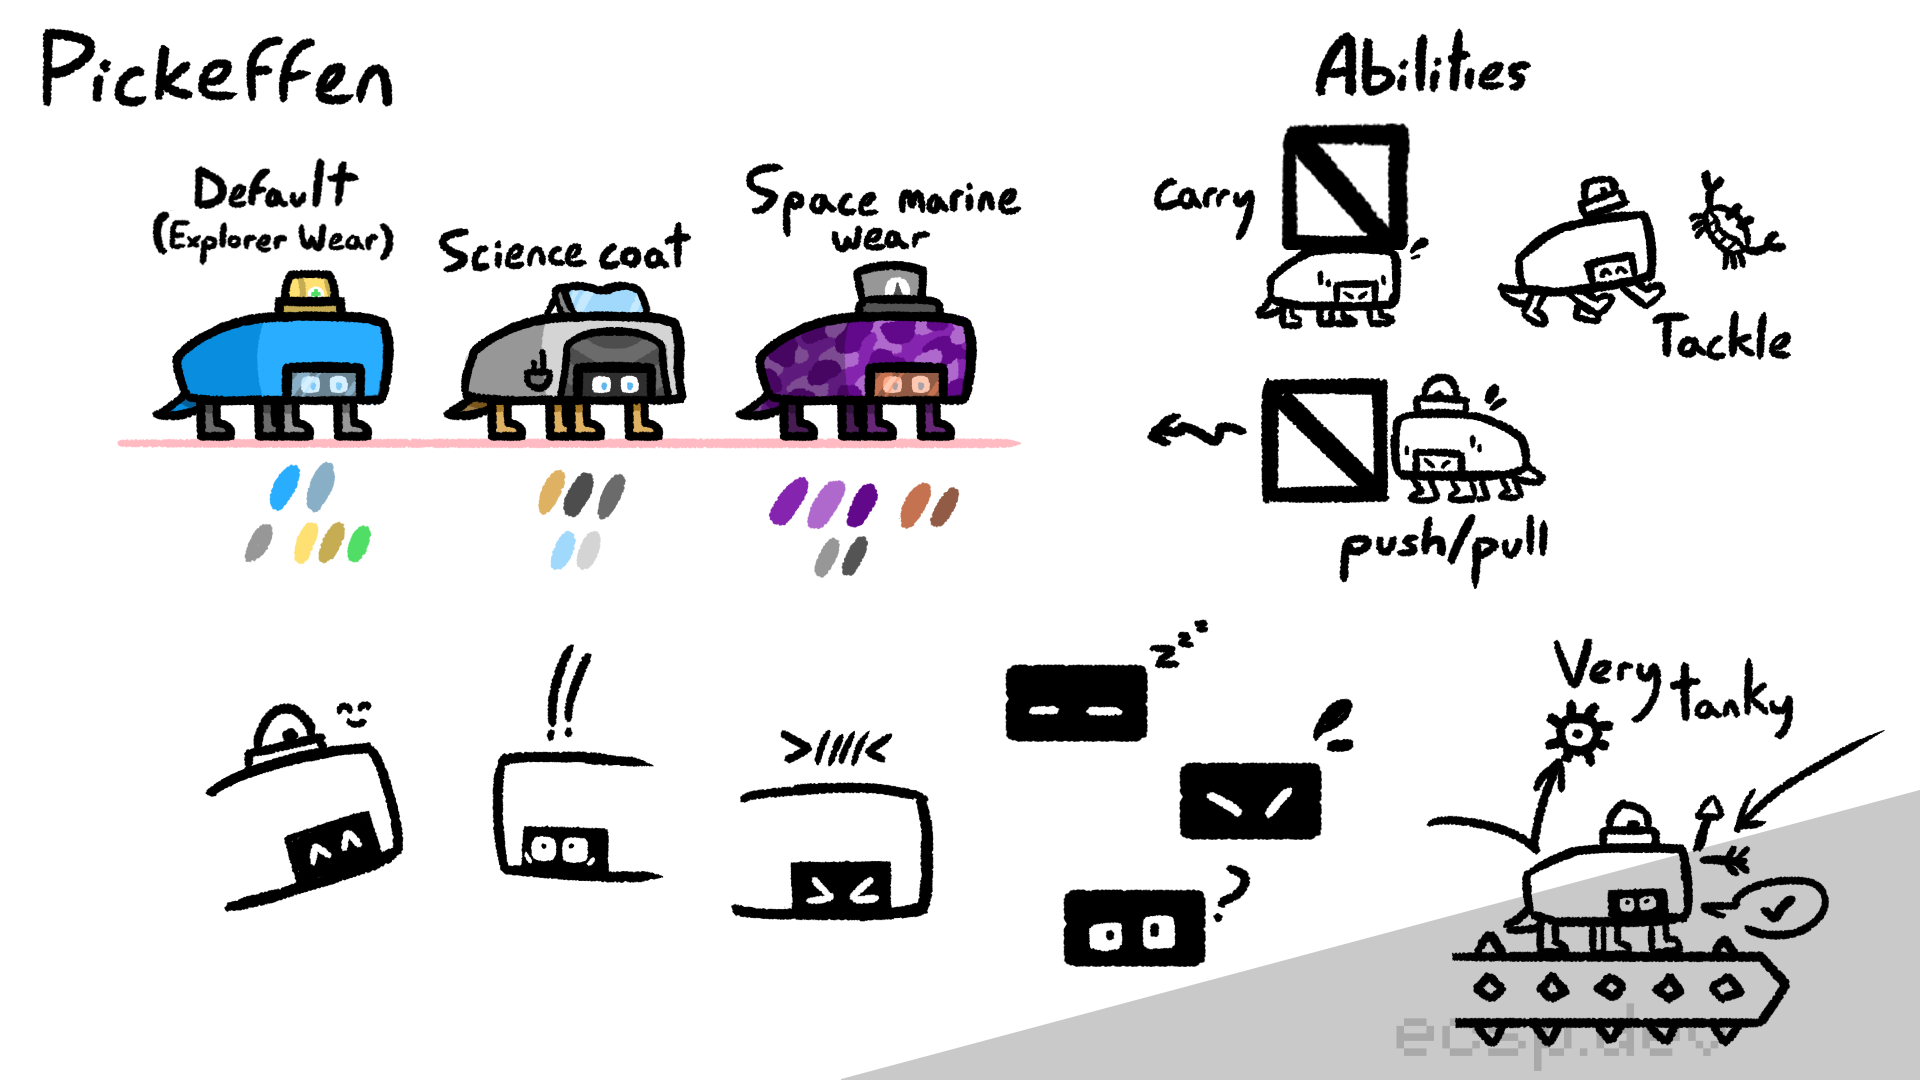 Pickeffen
Abilities
Default
(Explorer Wear)
Science coat
Space marine
wear
Carry
Tackle
push/pull
!!
>////<
zzz
?
Very
tanky
ecsp.dev